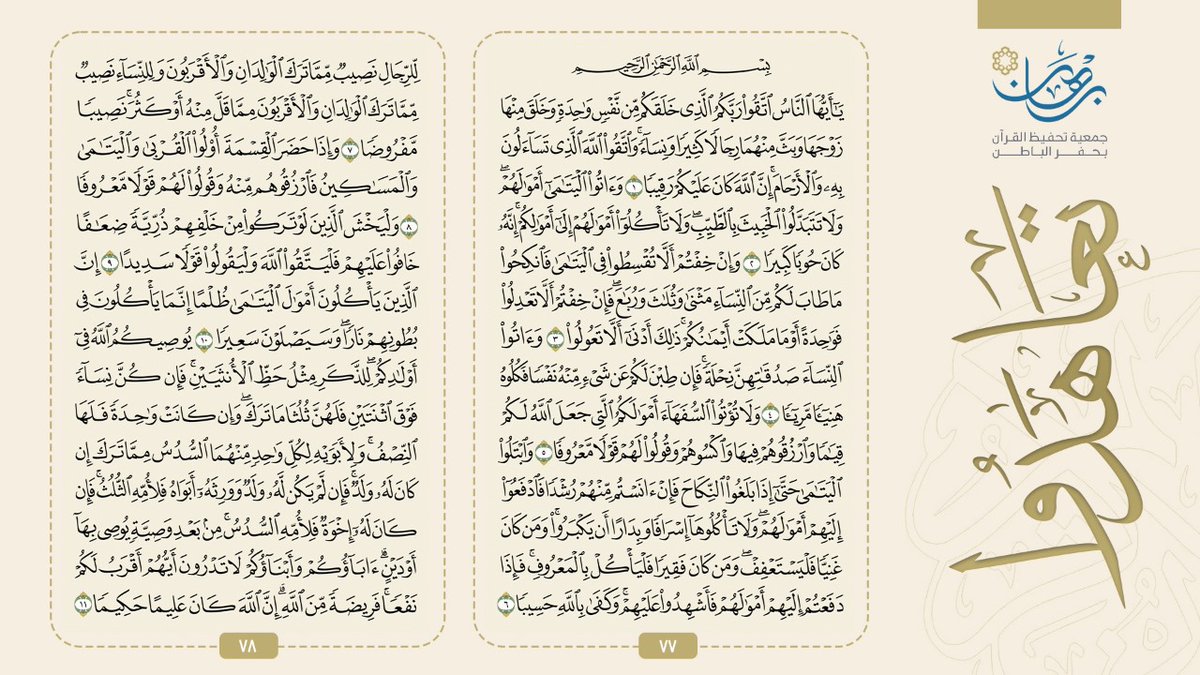 برهان
جمعية تحفيظ القرآن
بحفر الباطن
تعاهدوا
بِسْمِ ٱللَّهِ ٱلرَّحْمَٰنِ ٱلرَّحِيمِ
يَٰٓأَيُّهَا ٱلنَّاسُ ٱتَّقُوا۟ رَبَّكُمُ ٱلَّذِى خَلَقَكُم مِّن نَّفْسٍ وَٰحِدَةٍ وَخَلَقَ مِنْهَا
زَوْجَهَا وَبَثَّ مِنْهُمَا رِجَالًا كَثِيرًا وَنِسَآءً ۚ وَٱتَّقُوا۟ ٱللَّهَ ٱلَّذِى تَسَآءَلُونَ
بِهِۦ وَٱلْأَرْحَامَ ۚ إِنَّ ٱللَّهَ كَانَ عَلَيْكُمْ رَقِيبًا ١ وَءَاتُوا۟ ٱلْيَتَٰمَىٰٓ أَمْوَٰلَهُمْ ۖ
وَلَا تَتَبَدَّلُوا۟ ٱلْخَبِيثَ بِٱلطَّيِّبِ ۖ وَلَا تَأْكُلُوٓا۟ أَمْوَٰلَهُمْ إِلَىٰٓ أَمْوَٰلِكُمْ ۚ إِنَّهُۥ
كَانَ حُوبًا كَبِيرًا ٢ وَإِنْ خِفْتُمْ أَلَّا تُقْسِطُوا۟ فِى ٱلْيَتَٰمَىٰ فَٱنكِحُوا۟
مَا طَابَ لَكُم مِّنَ ٱلنِّسَآءِ مَثْنَىٰ وَثُلَٰثَ وَرُبَٰعَ ۖ فَإِنْ خِفْتُمْ أَلَّا تَعْدِلُوا۟
فَوَٰحِدَةً أَوْ مَا مَلَكَتْ أَيْمَٰنُكُمْ ۚ ذَٰلِكَ أَدْنَىٰٓ أَلَّا تَعُولُوا۟ ٣ وَءَاتُوا۟
ٱلنِّسَآءَ صَدُقَٰتِهِنَّ نِحْلَةً ۚ فَإِن طِبْنَ لَكُمْ عَن شَىْءٍ مِّنْهُ نَفْسًا فَكُلُوهُ
هَنِيٓـًٔا مَّرِيٓـًٔا ٤ وَلَا تُؤْتُوا۟ ٱلسُّفَهَآءَ أَمْوَٰلَكُمُ ٱلَّتِى جَعَلَ ٱللَّهُ لَكُمْ
قِيَٰمًا وَٱرْزُقُوهُمْ فِيهَا وَٱكْسُوهُمْ وَقُولُوا۟ لَهُمْ قَوْلًا مَّعْرُوفًا ٥ وَٱبْتَلُوا۟
ٱلْيَتَٰمَىٰ حَتَّىٰٓ إِذَا بَلَغُوا۟ ٱلنِّكَاحَ فَإِنْ ءَانَسْتُم مِّنْهُمْ رُشْدًا فَٱدْفَعُوٓا۟
إِلَيْهِمْ أَمْوَٰلَهُمْ ۖ وَلَا تَأْكُلُوهَآ إِسْرَافًا وَبِدَارًا أَن يَكْبَرُوا۟ ۚ وَمَن كَانَ
غَنِيًّا فَلْيَسْتَعْفِفْ ۖ وَمَن كَانَ فَقِيرًا فَلْيَأْكُلْ بِٱلْمَعْرُوفِ ۚ فَإِذَا
دَفَعْتُمْ إِلَيْهِمْ أَمْوَٰلَهُمْ فَأَشْهِدُوا۟ عَلَيْهِمْ ۚ وَكَفَىٰ بِٱللَّهِ حَسِيبًا ٦
٧٧
لِّلرِّجَالِ نَصِيبٌ مِّمَّا تَرَكَ ٱلْوَٰلِدَانِ وَٱلْأَقْرَبُونَ وَلِلنِّسَآءِ نَصِيبٌ
مِّمَّا تَرَكَ ٱلْوَٰلِدَانِ وَٱلْأَقْرَبُونَ مِمَّا قَلَّ مِنْهُ أَوْ كَثُرَ ۚ نَصِيبًا
مَّفْرُوضًا ٧ وَإِذَا حَضَرَ ٱلْقِسْمَةَ أُو۟لُوا۟ ٱلْقُرْبَىٰ وَٱلْيَتَٰمَىٰ
وَٱلْمَسَٰكِينُ فَٱرْزُقُوهُم مِّنْهُ وَقُولُوا۟ لَهُمْ قَوْلًا مَّعْرُوفًا
٨ وَلْيَخْشَ ٱلَّذِينَ لَوْ تَرَكُوا۟ مِنْ خَلْفِهِمْ ذُرِّيَّةً ضِعَٰفًا
خَافُوا۟ عَلَيْهِمْ فَلْيَتَّقُوا۟ ٱللَّهَ وَلْيَقُولُوا۟ قَوْلًا سَدِيدًا ٩ إِنَّ
ٱلَّذِينَ يَأْكُلُونَ أَمْوَٰلَ ٱلْيَتَٰمَىٰ ظُلْمًا إِنَّمَا يَأْكُلُونَ فِى
بُطُونِهِمْ نَارًا ۖ وَسَيَصْلَوْنَ سَعِيرًا ١٠ يُوصِيكُمُ ٱللَّهُ فِىٓ
أَوْلَٰدِكُمْ ۖ لِلذَّكَرِ مِثْلُ حَظِّ ٱلْأُنثَيَيْنِ ۚ فَإِن كُنَّ نِسَآءً
فَوْقَ ٱثْنَتَيْنِ فَلَهُنَّ ثُلُثَا مَا تَرَكَ ۖ وَإِن كَانَتْ وَٰحِدَةً فَلَهَا
ٱلنِّصْفُ ۚ وَلِأَبَوَيْهِ لِكُلِّ وَٰحِدٍ مِّنْهُمَا ٱلسُّدُسُ مِمَّا تَرَكَ إِن
كَانَ لَهُۥ وَلَدٌ ۚ فَإِن لَّمْ يَكُن لَّهُۥ وَلَدٌ وَوَرِثَهُۥٓ أَبَوَاهُ فَلِأُمِّهِ ٱلثُّلُثُ ۚ فَإِن
كَانَ لَهُۥٓ إِخْوَةٌ فَلِأُمِّهِ ٱلسُّدُسُ ۚ مِنۢ بَعْدِ وَصِيَّةٍ يُوصِى بِهَآ
أَوْ دَيْنٍ ۗ ءَابَآؤُكُمْ وَأَبْنَآؤُكُمْ لَا تَدْرُونَ أَيُّهُمْ أَقْرَبُ لَكُمْ
نَفْعًا ۚ فَرِيضَةً مِّنَ ٱللَّهِ ۗ إِنَّ ٱللَّهَ كَانَ عَلِيمًا حَكِيمًا ١١
٧٨